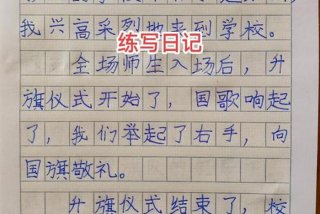 我兴高采烈地来到学校。
练写日记
全场师生入场后，升
旗仪式开始了，国歌响起
了，我们举起了右手，向
国旗敬礼。
升旗仪式结束了，校